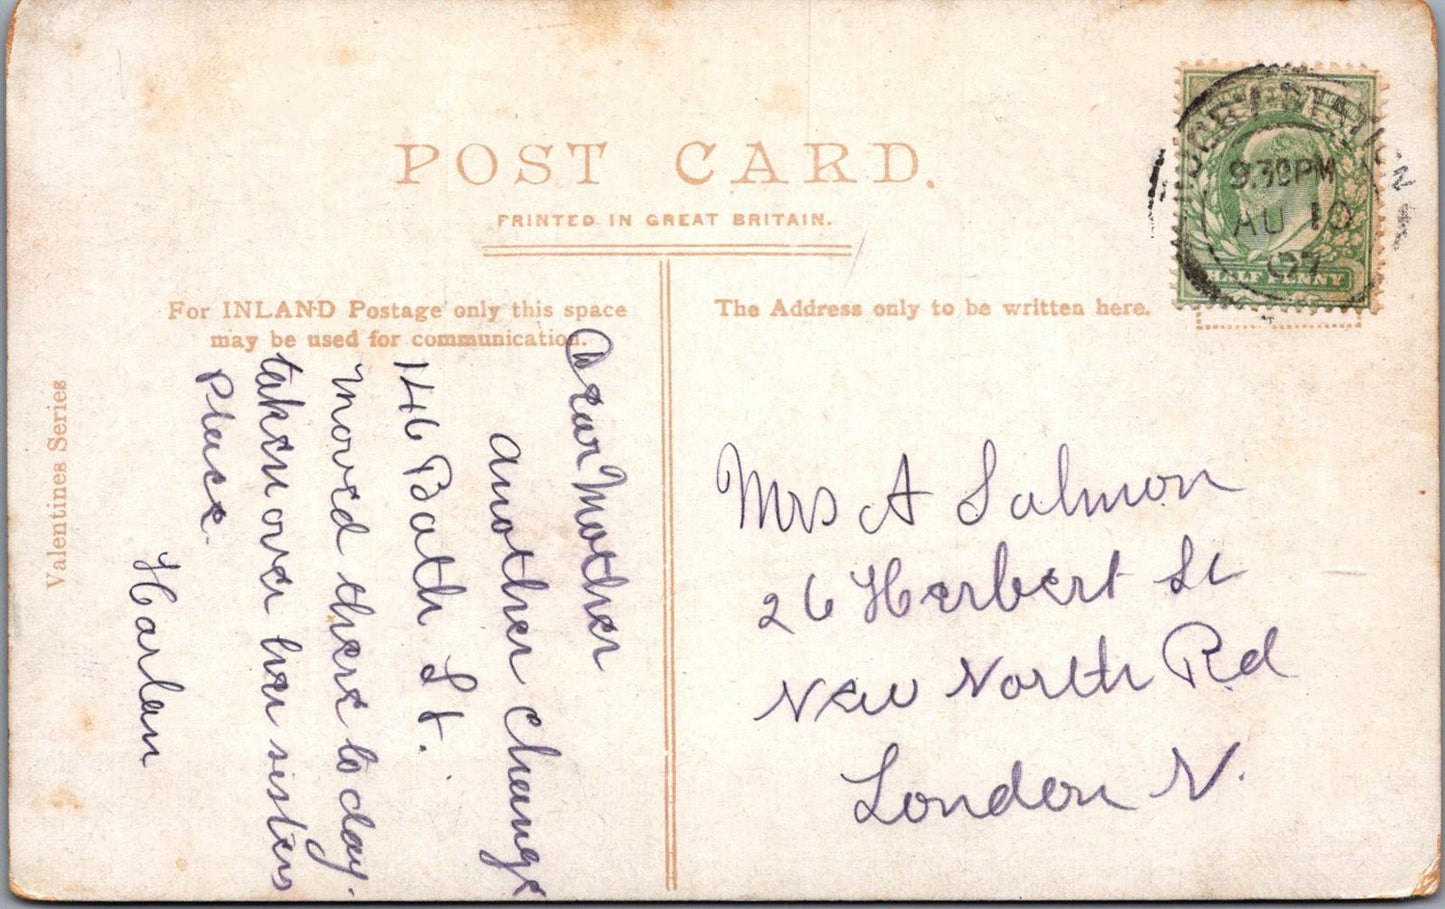 POST CARD.
PRINTED IN GREAT BRITAIN.
For INLAND Postage only this space
may be used for communication.
The Address only to be written here.
Valentines Series
9.30PM
AU 10
07
HALF PENNY
Dear Mother
Another change
146 Bath St.
Moved there to day.
taken over her sisters
Place.
Harlan
Mrs A Salmon
26 Herbert St
New North Rd
London N.